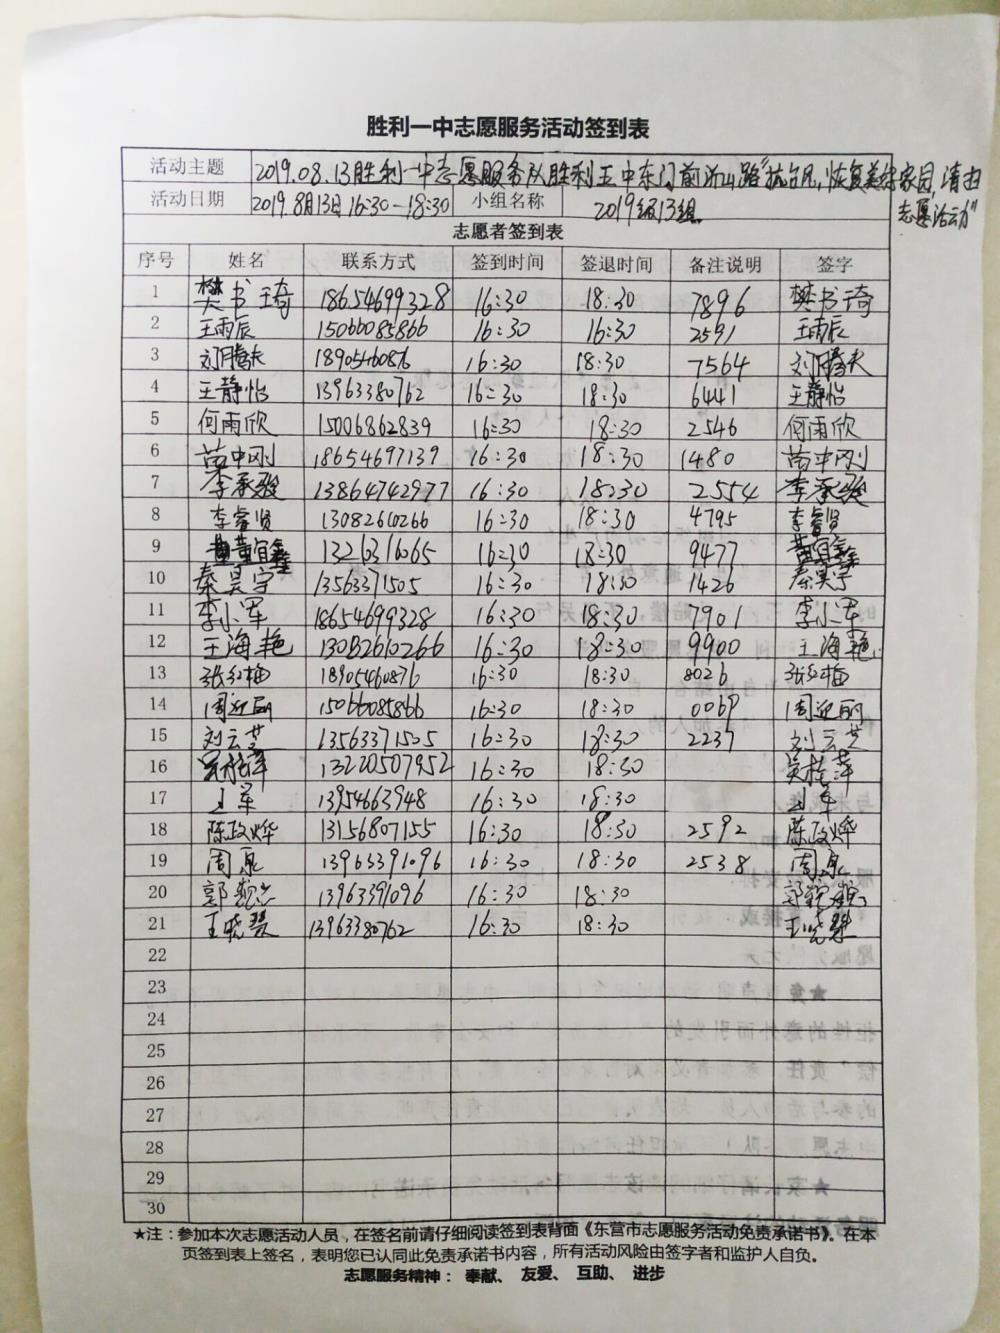 胜利一中志愿服务活动签到表
活动主题 2019.08.13胜利一中志愿服务队胜利五中东门前沂山路"抗台风,恢复美好家园,清扫志愿活动"
活动日期 2019.8月13日16:30-18:30 小组名称 2019级13组
志愿者签到表
序号 姓名 联系方式 签到时间 签退时间 备注说明 签字
1 樊书琦 18654699328 16:30 18:30 7896 樊书琦
2 王雨辰 15066085866 16:30 16:30 2591 王雨辰
3 刘腾夫 18905460876 16:30 18:30 7564 刘腾夫
4 王静怡 13963380762 16:30 18:30 6441 王静怡
5 何雨欣 15006862839 16:30 18:30 2546 何雨欣
6 苗中刚 18654697139 16:30 18:30 1480 苗中刚
7 李承骏 13864742977 16:30 18:30 2554 李承骏
8 李睿贤 13082610266 16:30 18:30 4795 李睿贤
9 董宜鑫 1326316065 16:30 18:30 9477 董宜鑫
10 秦昊宇 13563371505 16:30 18:30 1426 秦昊宇
11 李小军 18654699328 16:30 18:30 7901 李小军
12 王海艳 13082610266 16:30 18:30 9900 王海艳
13 张红梅 18905460876 16:30 18:30 8026 张红梅
14 周迎丽 15066085866 16:30 18:30 0069 周迎丽
15 刘云芝 13563371505 16:30 18:30 2237 刘云芝
16 吴桂萍 13220507952 16:30 18:30 吴桂萍
17 13954663948 16:30 18:30
18 陈政烨 13156807155 16:30 18:30 2592 陈政烨
19 周泉 13963391096 16:30 18:30 2538 周泉
20 郭 13963391096 16:30 18:30 郭
21 王晓慧 13963380762 16:30 18:30 王晓慧
22
23
24
25
26
27
28
29
30
★注：参加本次志愿活动人员，在签名前请仔细阅读签到表背面《东营市志愿服务活动免责承诺书》。在本
页签到表上签名，表明您已认同此免责承诺书内容，所有活动风险由签字者和监护人自负。
志愿服务精神： 奉献、 友爱、 互助、 进步